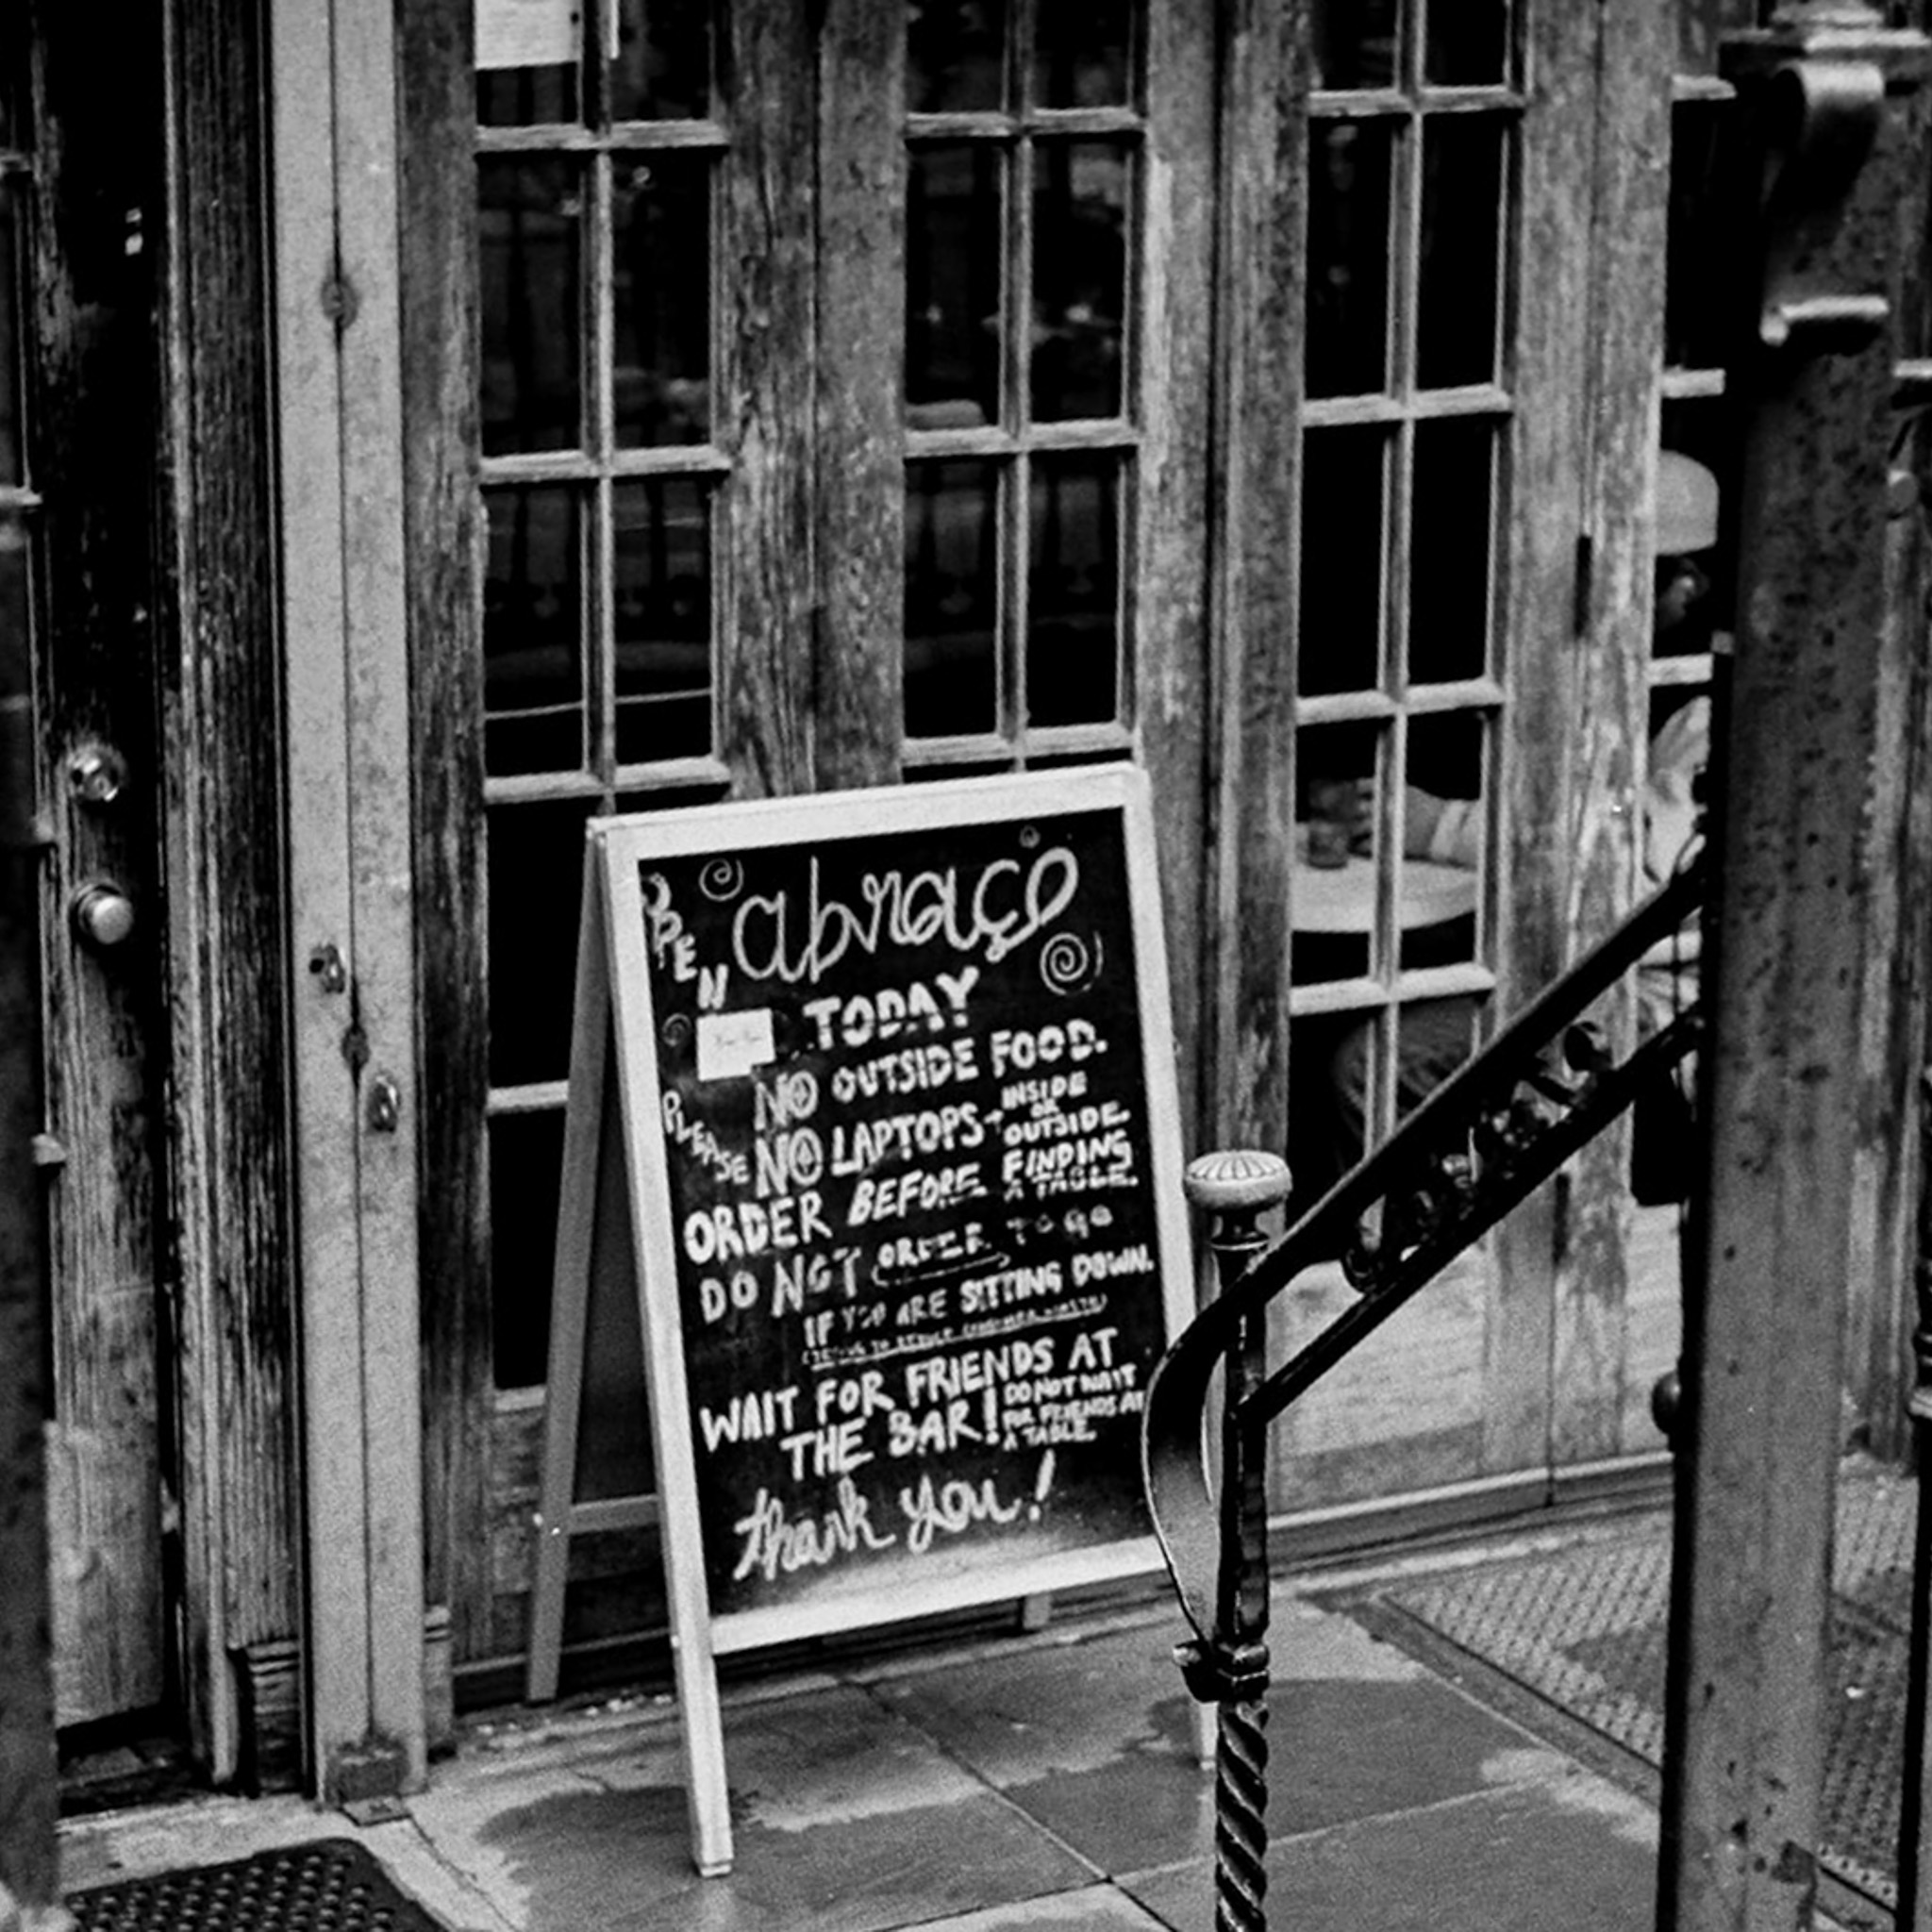 OPEN
abraço
TODAY
NO OUTSIDE FOOD.
PLEASE
NO LAPTOPS → INSIDE
OR
OUTSIDE
ORDER BEFORE FINDING
A TABLE.
DO NOT ORDER TO GO
IF YOU ARE SITTING DOWN.
(TRYING TO REDUCE CONSUMER WASTE)
WAIT FOR FRIENDS AT
THE BAR! DO NOT WAIT
FOR FRIENDS AT
A TABLE.
thank you!